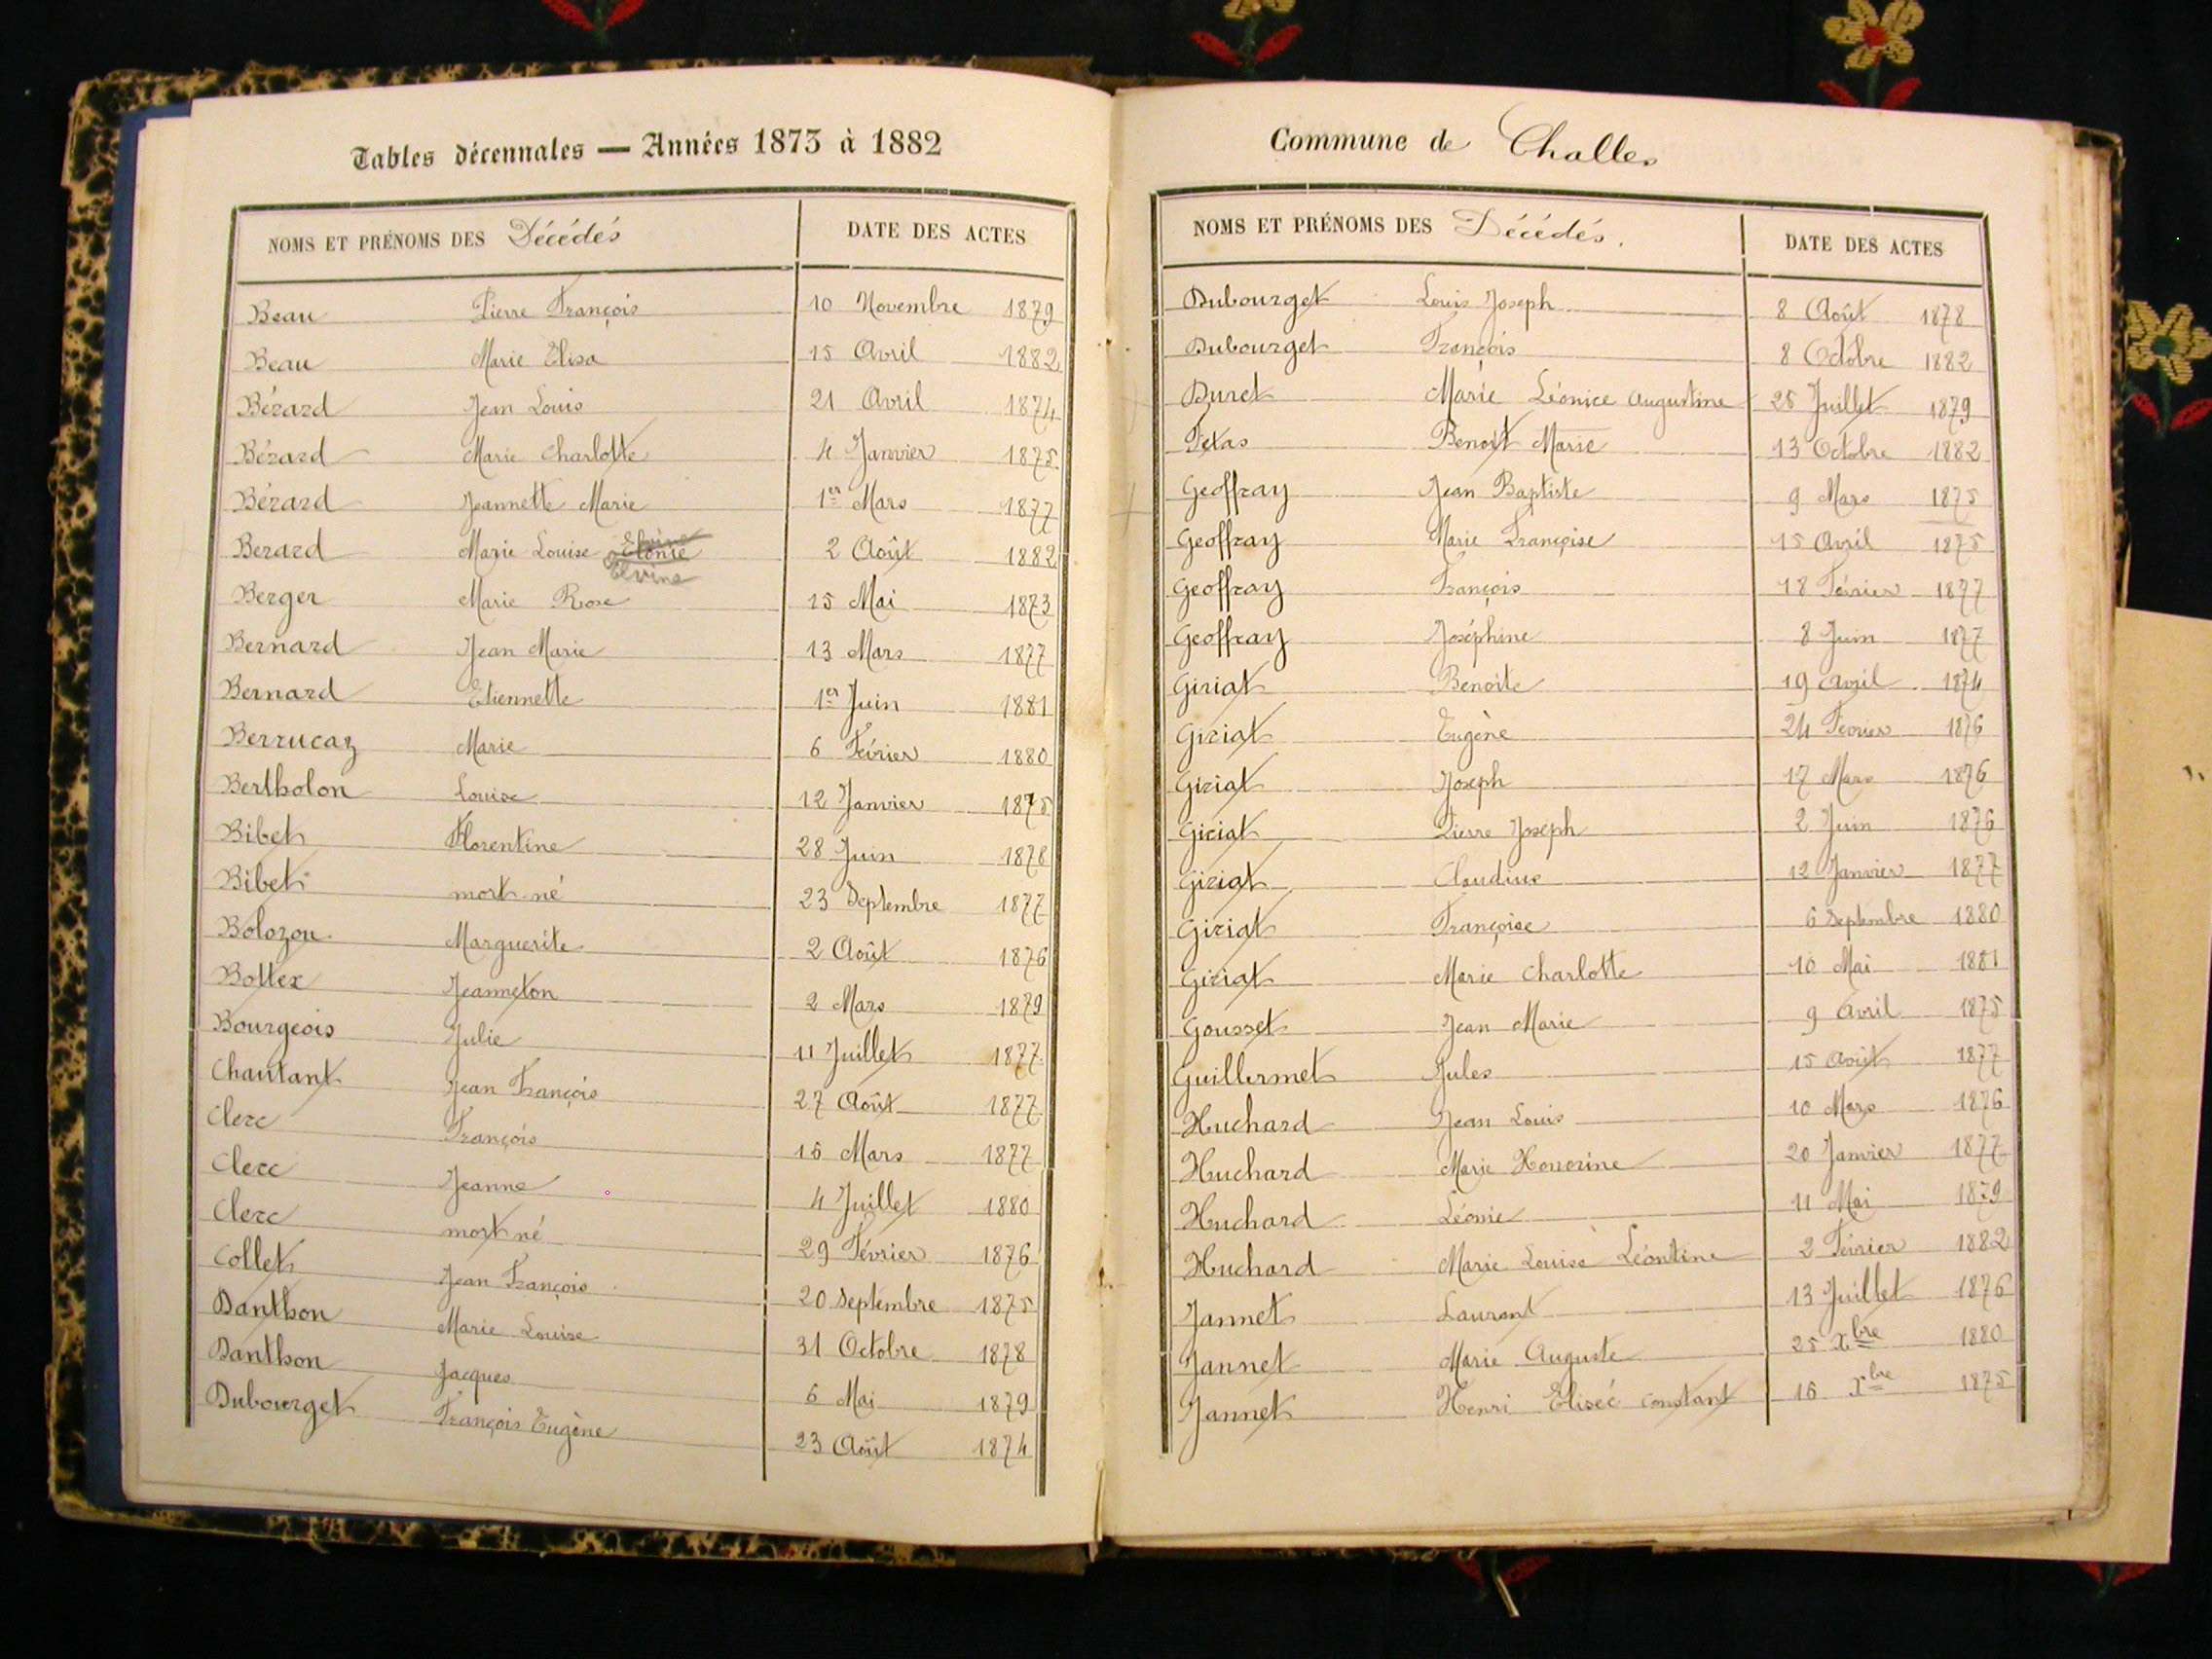 Tables décennales — Années 1873 à 1882
NOMS ET PRÉNOMS DES Décédés DATE DES ACTES
Beau Pierre François 10 Novembre 1879
Beau Marie Elisa 15 Avril 1882
Bérard Jean Louis 21 Avril 1874
Bérard Marie Charlotte 4 Janvier 1875
Bérard Jeannette Marie 1er Mars 1877
Berard Marie Louise Elvine 2 Août 1882
Berger Marie Rose 15 Mai 1873
Bernard Jean Marie 13 Mars 1877
Bernard Etiennette 1er Juin 1881
Berrucaz Marie 6 Février 1880
Bertholon Louise 12 Janvier 1875
Bibet Florentine 28 Juin 1878
Bibet mort-né 23 Septembre 1877
Bolozon Marguerite 2 Août 1876
Bottex Jeanneton 2 Mars 1879
Bourgeois Julie 11 Juillet 1877
Chantant Jean François 27 Août 1877
Clerc François 15 Mars 1877
Clerc Jeanne 4 Juillet 1880
Clerc mort né 29 Février 1876
Collet Jean François 20 Septembre 1875
Danthon Marie Louise 31 Octobre 1878
Danthon Jacques 6 Mai 1879
Dubourget François Eugène 23 Août 1874
Commune de Challes
NOMS ET PRÉNOMS DES Décédés. DATE DES ACTES
Dubourget Louis Joseph 8 Août 1878
Dubourget François 8 Octobre 1882
Duret Marie Léonice Augustine 25 Juillet 1879
Fetas Benoit Marie 13 Octobre 1882
Geoffray Jean Baptiste 9 Mars 1875
Geoffray Marie Françoise 15 Avril 1875
Geoffray François 18 Février 1877
Geoffray Joséphine 8 Juin 1877
Giriat Benoite 19 Avril 1874
Giriat Eugène 24 Février 1876
Giriat Joseph 17 Mars 1876
Giriat Pierre Joseph 2 Juin 1876
Giriat Claudius 12 Janvier 1877
Giriat Françoise 6 Septembre 1880
Giriat Marie Charlotte 10 Mai 1881
Gousset Jean Marie 9 Avril 1875
Guillermet Jules 15 Août 1877
Huchard Jean Louis 10 Mars 1876
Huchard Marie Honorine 20 Janvier 1877
Huchard Léonie 11 Mai 1879
Huchard Marie Louise Léontine 2 Février 1882
Jannet Laurent 13 Juillet 1876
Jannet Marie Auguste 25 Xbre 1880
Jannet Henri Elisée Constant 16 Xbre 1875